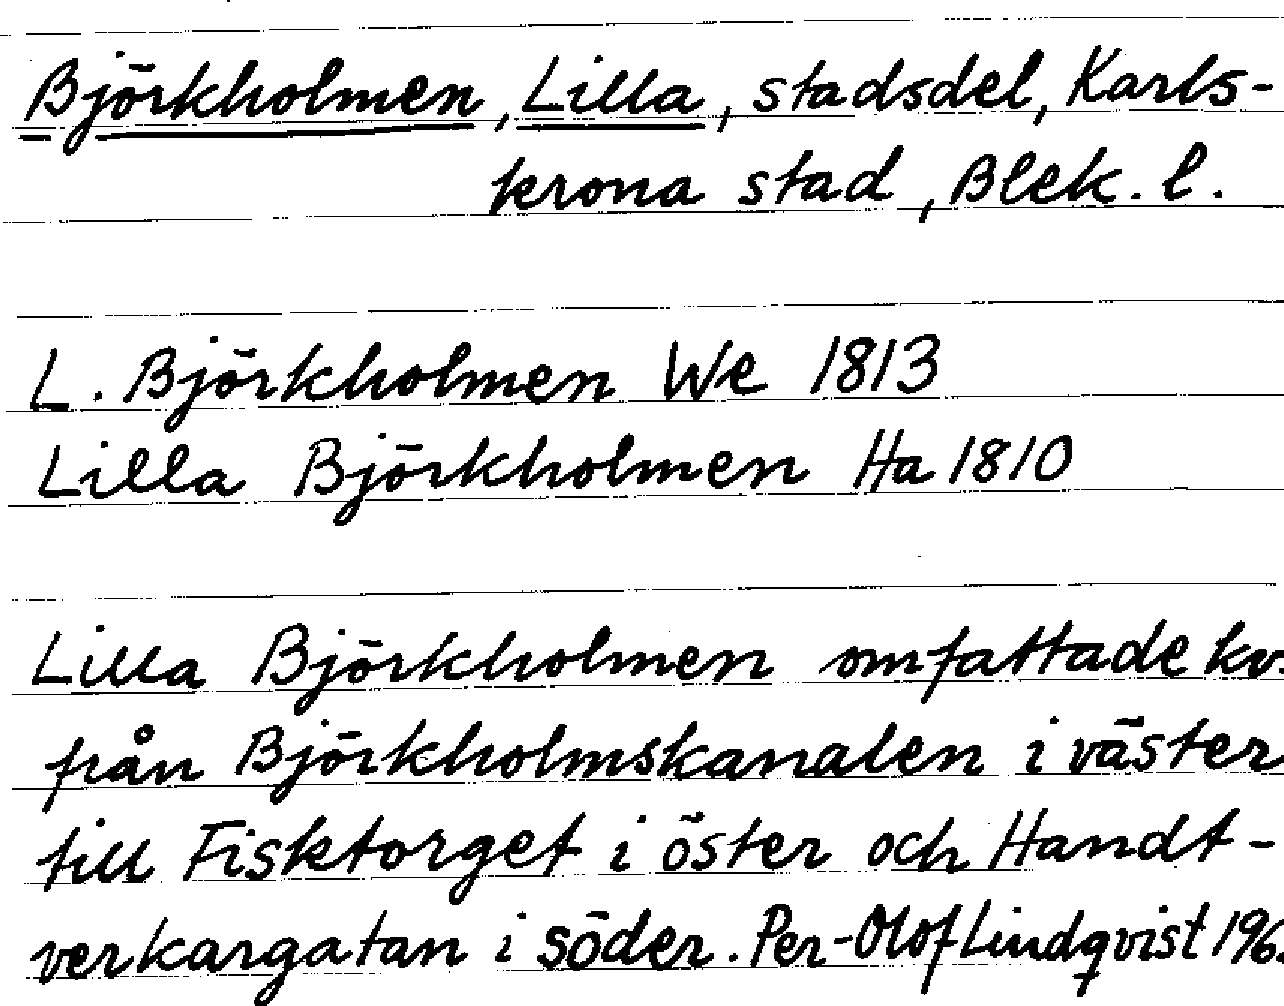 Björkholmen, Lilla, stadsdel, Karls-
krona stad, Blek. l.
L. Björkholmen We 1813
Lilla Björkholmen Ha 1810
Lilla Björkholmen omfattade kv.
från Björkholmskanalen i väster
till Fisktorget i öster och Handt-
verkargatan i söder. Per-Olof Lindqvist